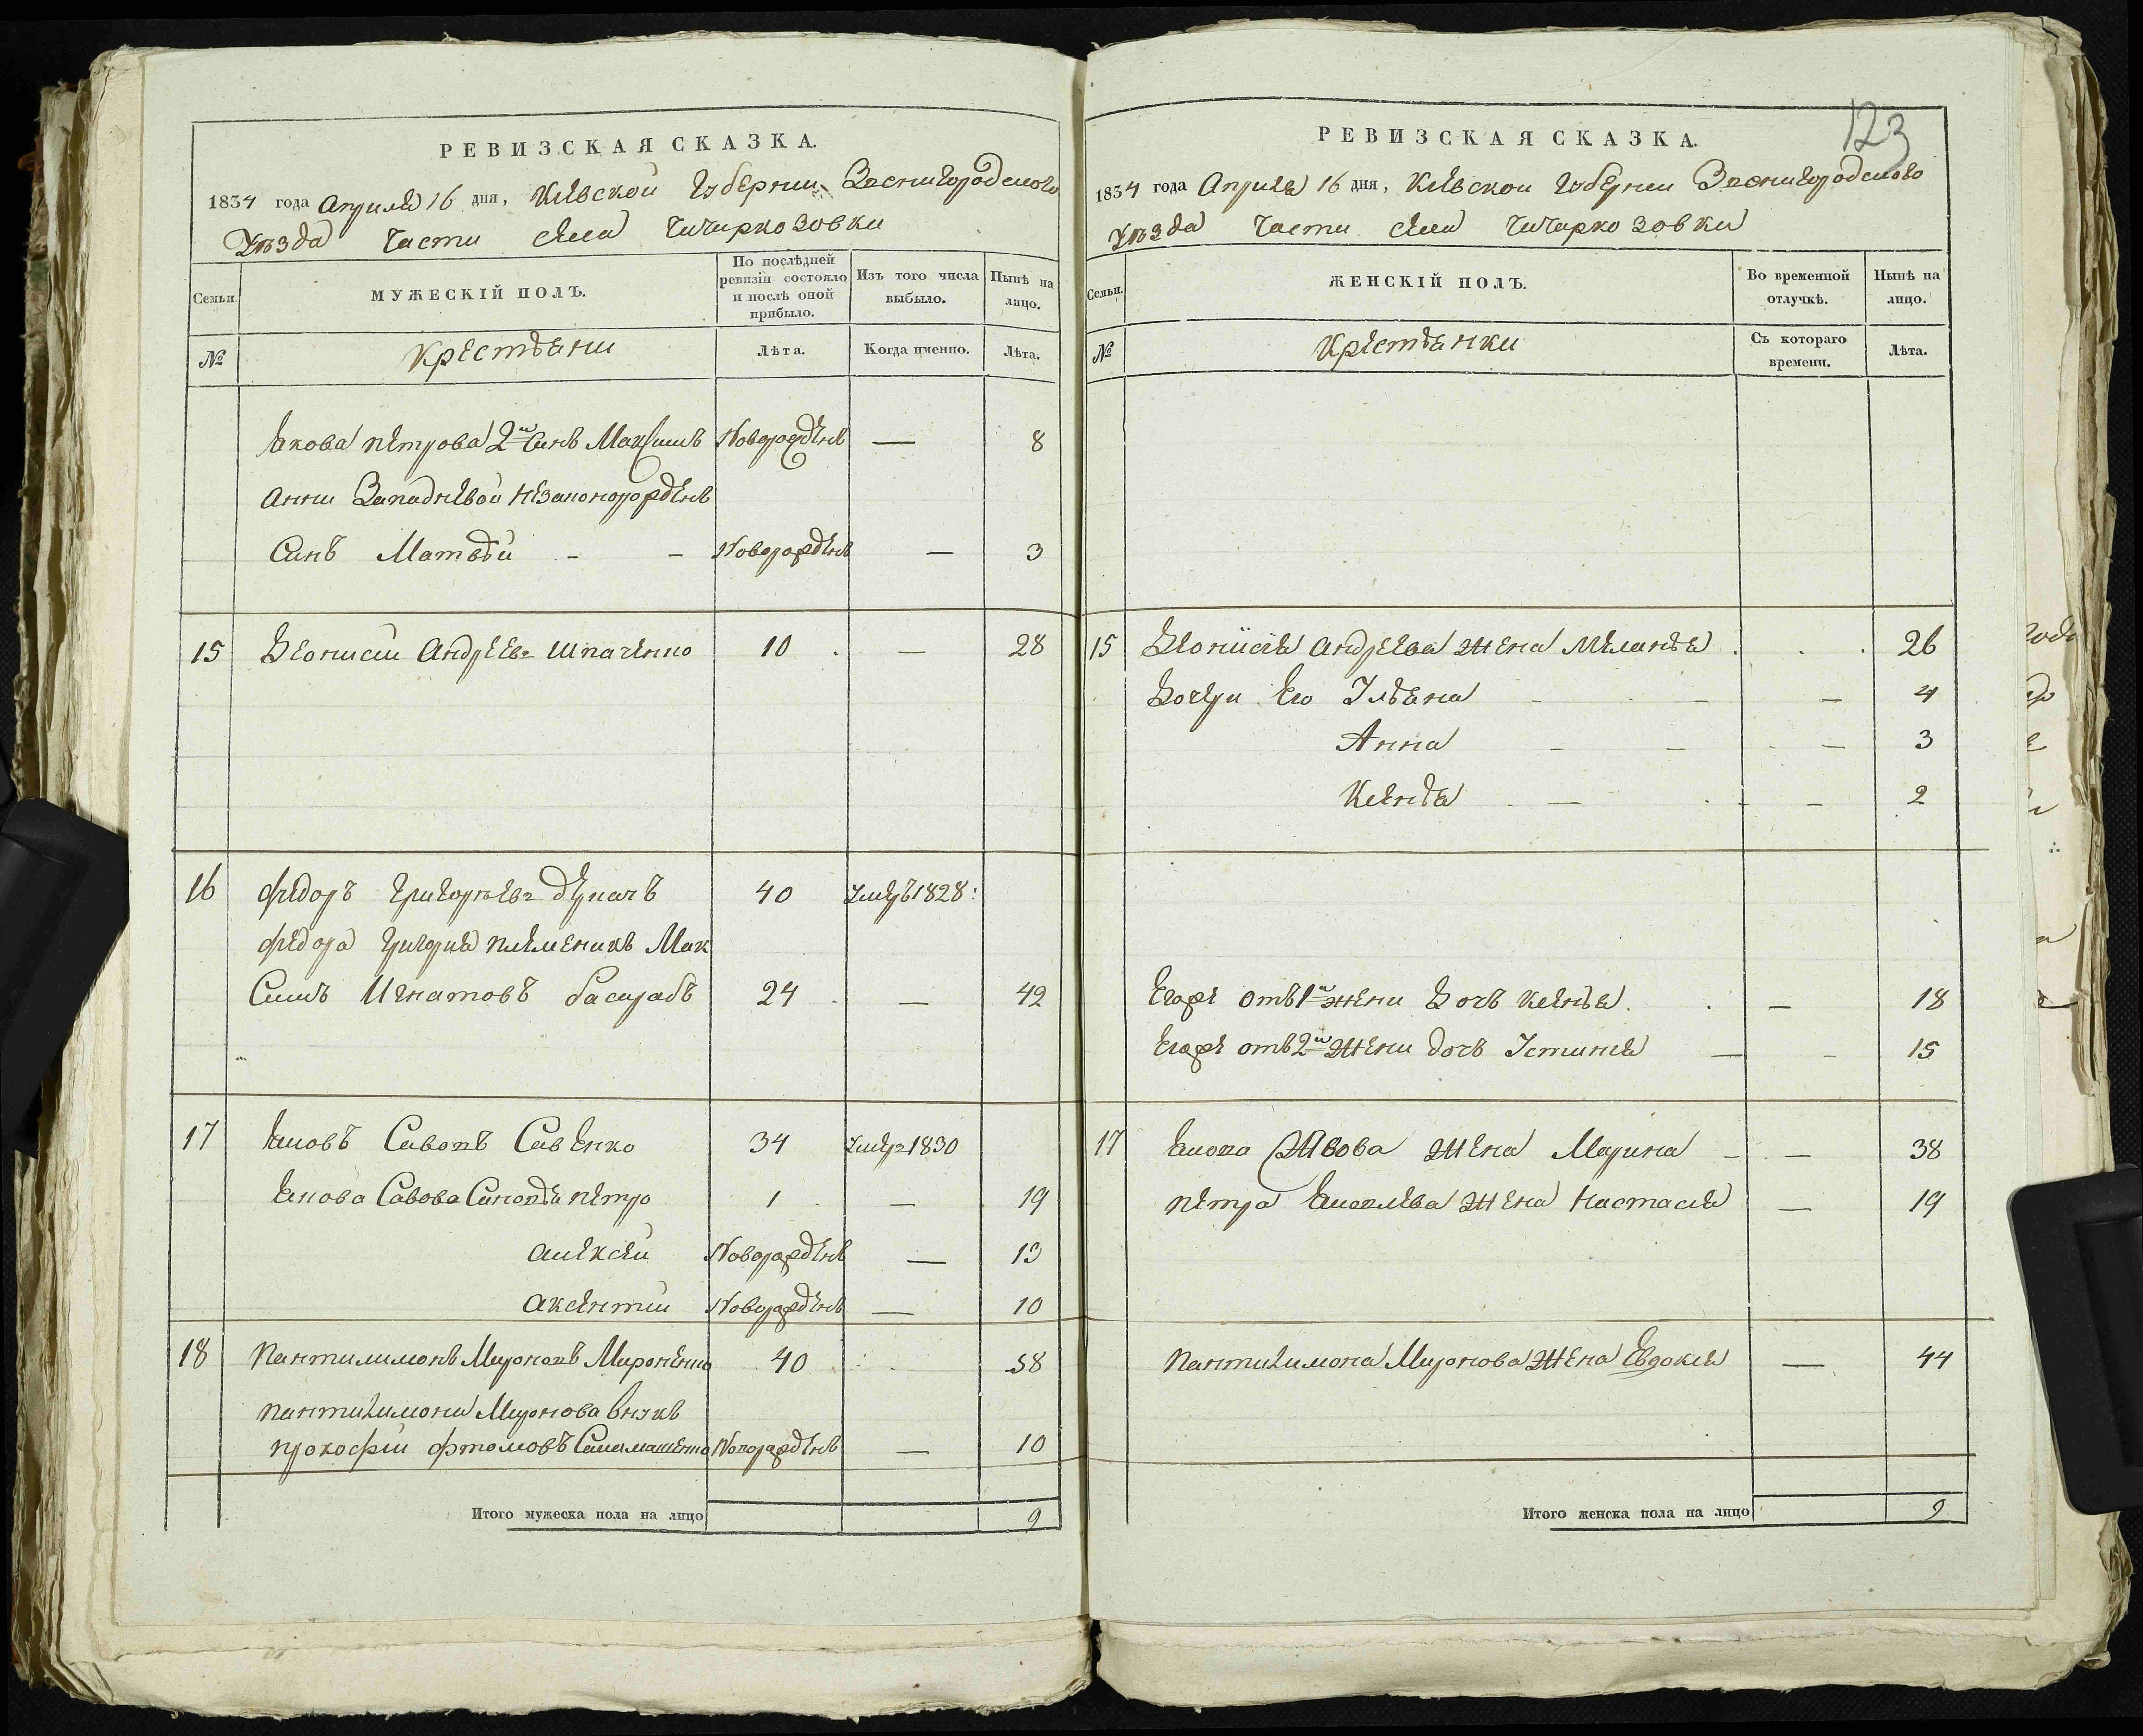 РЕВИЗСКАЯ СКАЗКА.
1834 года Апреля 16 дня, Киевской Губернии Звенигородского
Уезда части села Чичиркозовки
Семьи.
МУЖЕСКІЙ ПОЛЪ.
По послѣдней ревизіи состояло и послѣ оной прибыло.
Изъ того числа выбыло.
Нынѣ на лицо.
№
Крестьяни
Лѣта.
Когда именно.
Лѣта.
Якова Петрова 2й Синъ Максимъ Новорожденъ — 8
Анни Западневой незаконорожденъ
Синъ Матвѣй - - Новорожденъ — 3
15 Деонисий Андреевъ Шпаченко 10 — 28
16 Федоръ Григорьевъ Деркачъ 40 Умеръ 1828:
Федора Григория племеникъ Мак
Симъ Игнатовъ Басарабъ 24 — 42
17 Яковъ Савовъ Савенко 34 Умеръ 1830
Якова Савова Синовья Петро 1 — 19
Алексей Новорожденъ — 13
Аксентий Новорожденъ — 10
18 Пантилимонъ Мироновъ Мироненко 40 58
Пантилимона Миронова внукъ
Прокофий Новорожденъ — 10
Итого мужеска пола на лицо 9
123
РЕВИЗСКАЯ СКАЗКА.
1834 года Апреля 16 дня, Киевской Губернии Звенигородского
Уезда части села Чичиркозовки
Семьи.
ЖЕНСКІЙ ПОЛЪ.
Во временной отлучкѣ.
Нынѣ на лицо.
№
Крестьянки
Съ котораго времени.
Лѣта.
15 Деонисия Андреева жена Меланья 26
Дочери Его Ульяна - — — 4
Анна — — — 3
Ксенья — — 2
Егоже отъ 1й жени Дочь Ксенья — 18
Егоже отъ 2й жени дочь Устиния — - 15
17 Якова Савова жена Марина - — 38
Петра Яковлева жена Настасия — 19
Пантилимона Миронова жена Евдокия — 44
Итого женска пола на лицо 9